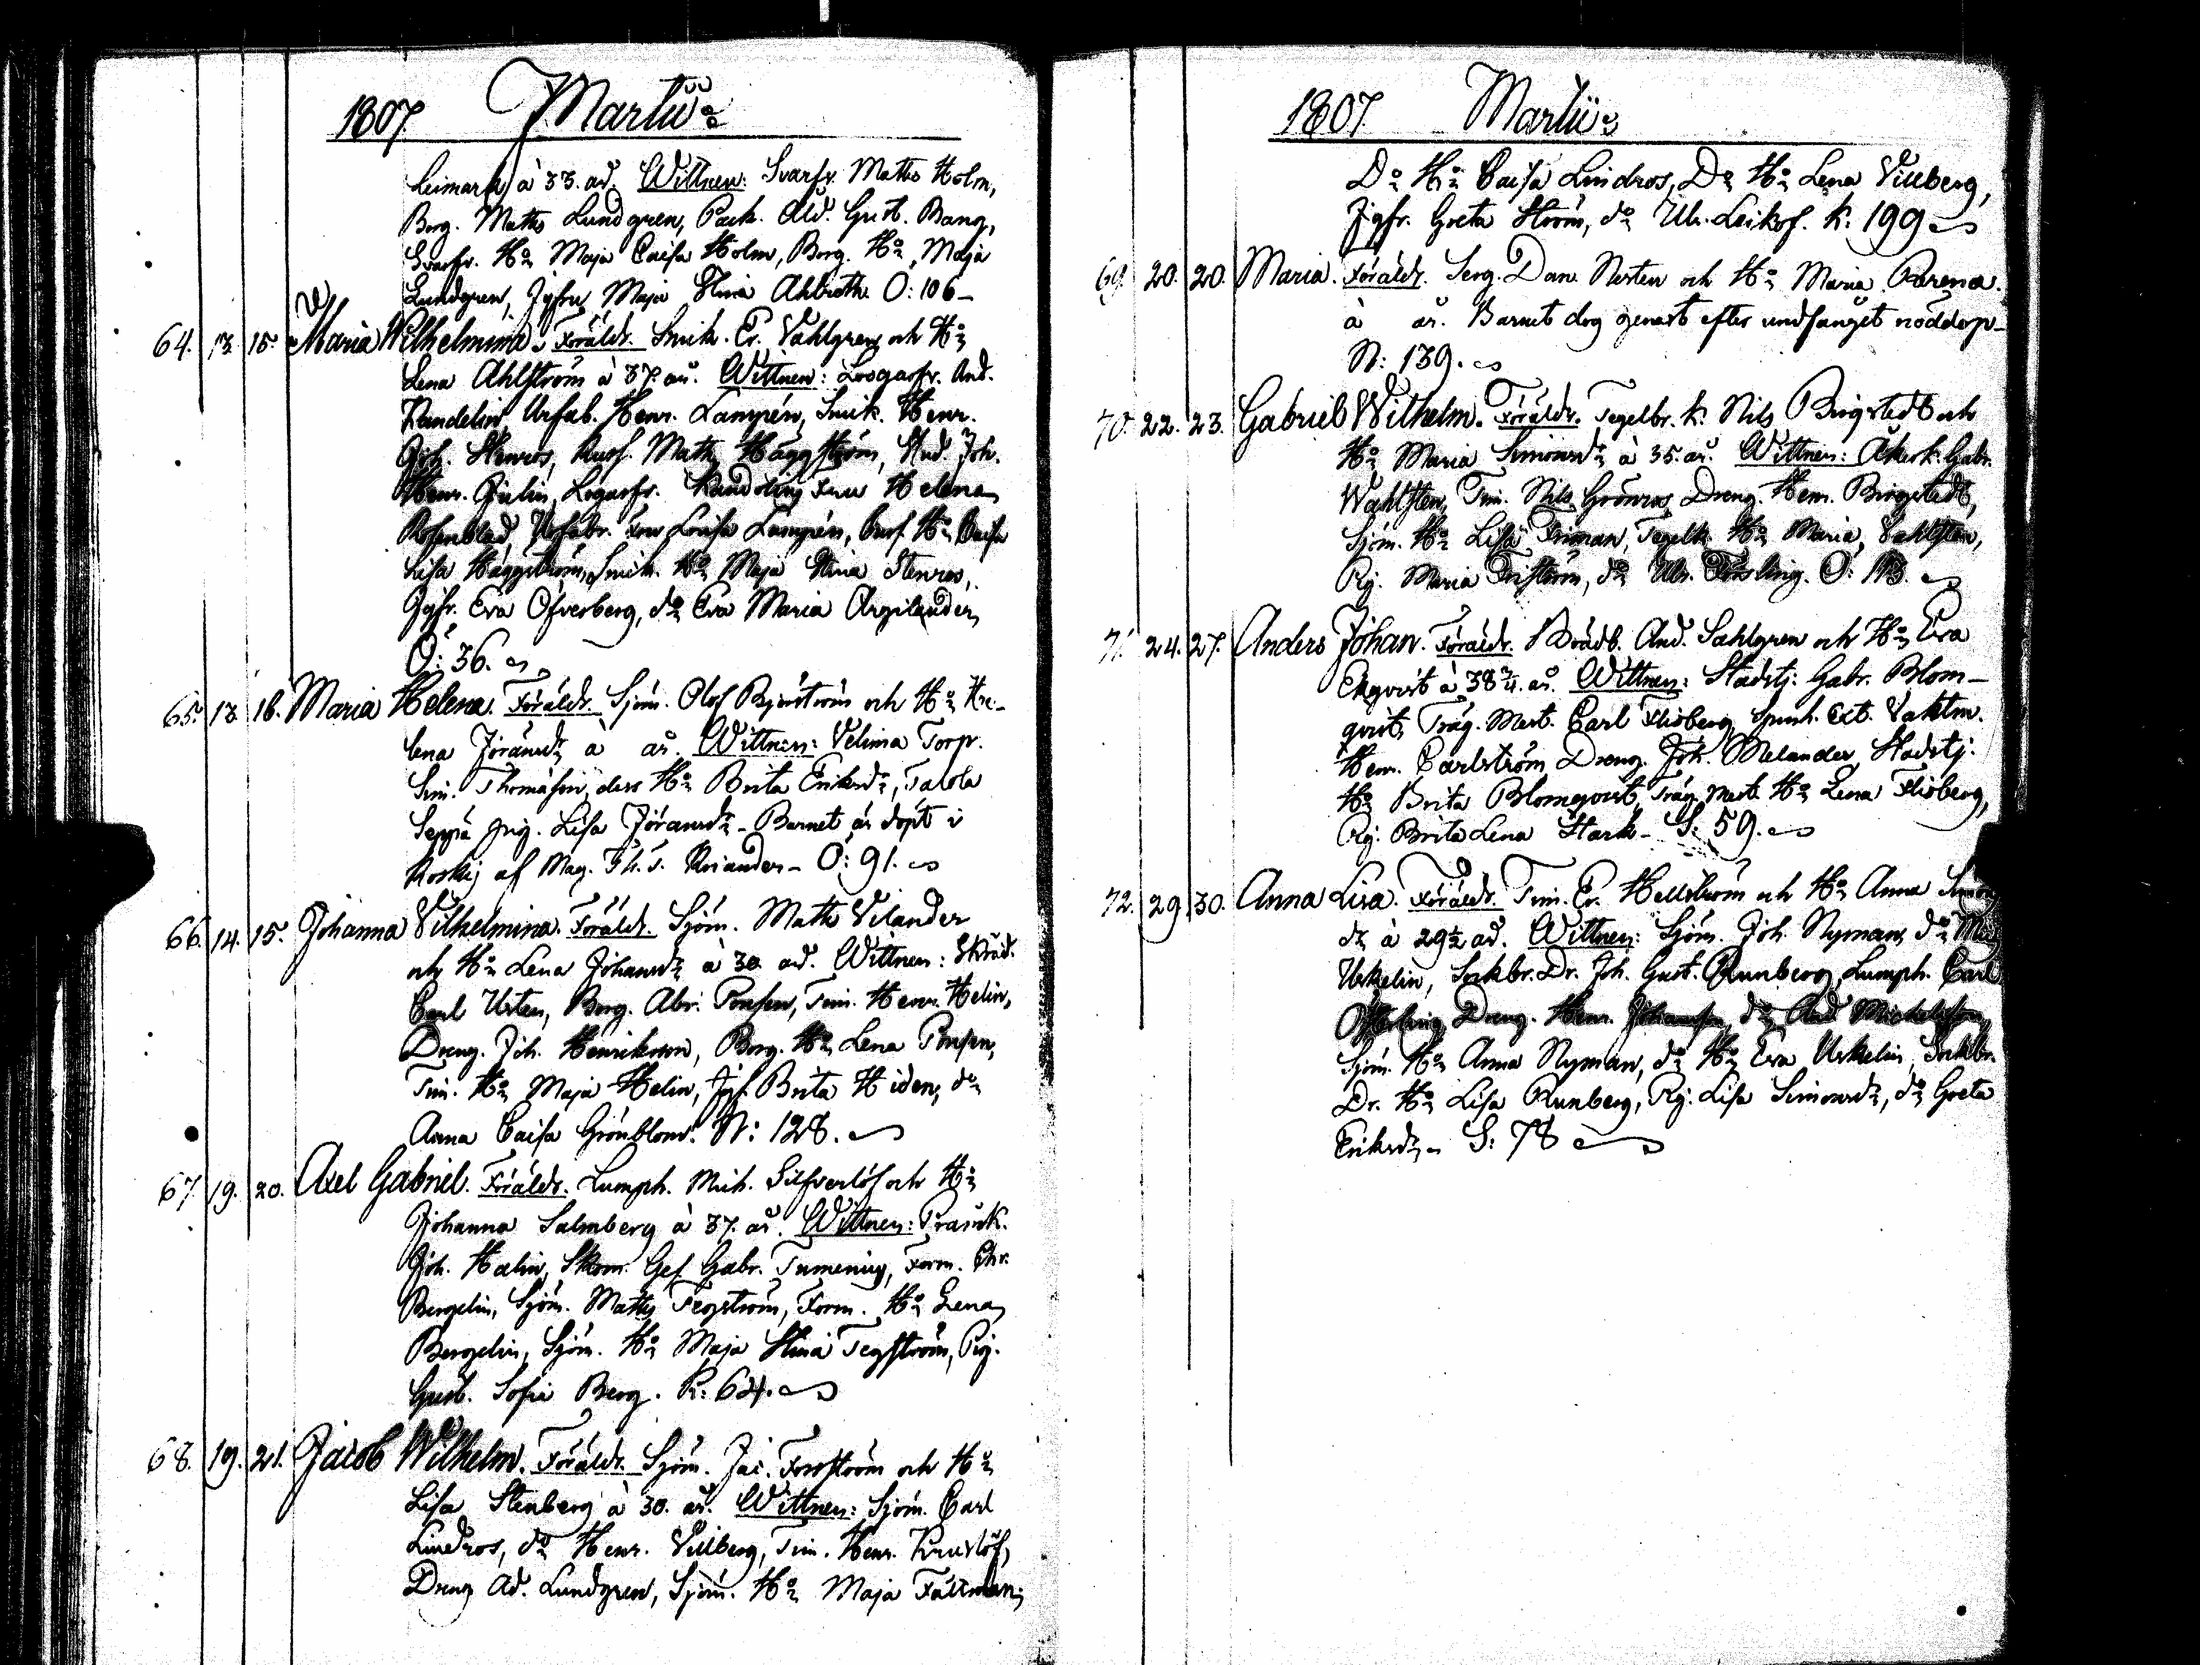 1807. Martii
Leimark à 33. år. Wittnen: Svarfv. Matts Holm,
Borg. Matts Lundgren, Pack. Åld. Gust. Bang,
Svarfv. Hu Maja Caisa Holm, Borg. Hu Maja
Lundgren, Jgfru Maja Stina Ahlroth. Ö: 106 -
64. 13. 15. Maria Wilhelmina. Föräldr. Snick. Er. Vahlgren och Hu
Lena Ahlström à 37. år. Wittnen: And.
Randelin, Urfab. Henr. Lampén, Snick. Henr.
Joh. Stenros, Math. Häggström, Stud. Joh.
Henr. Julin, Fru Helena
Rosenblad, Urfabr. Fru Lovisa Lampén, Hu Caisa
Lisa Häggström, Snick. Hu Maja Stina Stenros,
Jgfr. Eva Öfverberg, do Eva Maria Argilander,
Ö: 36.
65. 13. 16. Maria Helena. Föräldr. Sjöm. Olof Björström och Hu He-
lena Jöransdr à år. Wittnen: Velima Torp.
Sim. Thomasson, dess Hu Brita Eriksdr, Talola
Seppä pig. Lisa Jöransdr - Barnet är döpt i
Koskij af Mag. Ö: 91.
66. 14. 15. Johanna Vilhelmina. Föräldr. Sjöm. Matts Vilander
och Hu Lena Johansdr à 30 år. Wittnen: Skräd.
Carl Urten, Borg. Abr. Ponsen, Tim. Henr. Helin,
Dreng. Joh. Henriksson, Borg. Hu Lena Ponsen,
Tim. Hu Maja Helin, Jgf. Brita Hiden, do
Anna Caisa Grönblom. N: 128.
67. 19. 20. Axel Gabriel. Föräldr. Lumph. Mich. Silfverlöf och Hu
Johanna Salmberg à 37. år. Wittnen:
Joh. Halin, Skom. Ges. Gabr. Tumenius, Form. Chr.
Bergelin, Sjöm. Matts Tegström, Form. Hu Lena
Bergelin, Sjöm. Hu Maja Stina Tegström, Pig.
Gust. Sofia Berg. K: 64.
68. 19. 21. Jacob Wilhelm. Föräldr. Sjöm. Jac. Forsström och Hu
Lisa Stenberg à 30. år. Wittnen: Sjöm. Carl
Lindros, do Henr. Villberg, Tim. Henr.
Dreng Ad. Lundgren, Sjöm. Hu Maja Fältman,
1807. Martii
Do Hu Caisa Lindros, Do Hu Lena Villberg,
Jgfr. Greta Ström, do Ulr. Leikof. K: 199
69. 20. 20. Maria. Föräldr. Serg. Dan. Nerten och Hu Maria Arena
à år. Barnet dog genast efter undfånget nöddop -
N: 139.
70. 22. 23. Gabriel Wilhelm. Föräldr. Tegelbr. k. Nils Birgstedt och
Hu Maria Simonsdr à 35. år. Wittnen: Åkerk. Gabr.
Wahlsten, Tim. Nils Grönros, Dreng. Henr. Birgstedt,
Sjöm. Hu Lisa Friman, Tegelk. Hu Maria Vahlsten,
Pig. Maria do Ulr. Ö: 113.
71. 24. 27. Anders Johan. Föräldr. Brädb. And. Sahlgren och Hu Eva
Ekqvist à 38 3/4. år. Wittnen: Stadstj. Gabr. Blom-
qvist, Träg. Mest. Carl Flioberg, Spinh. Ext. Vaktm.
Henr. Carlström, Dreng. Joh. Melander, Stadstj.
Hu Brita Blomqvist, Träg. Mest. Hu Lena Flioberg,
Pig. Brita Lena Stark - S: 59.
72. 29. 30. Anna Lisa. Föräldr. Tim. Er. Hellström och Hu Anna Simons
dr à 29 1/2 år. Wittnen: Sjöm. Joh. Nyman, do
Urkelin, Sockbr. Dr. Joh. Gust. Runberg, Lumph. Carl
Dreng. Henr. Johansson, do And. Michelsson,
Sjöm. Hu Anna Nyman, do Hu Eva Urkelin, Sockbr.
Dr. Hu Lisa Runberg, Pig. Lisa Simonsdr, do Greta
Eriksdr - S: 78